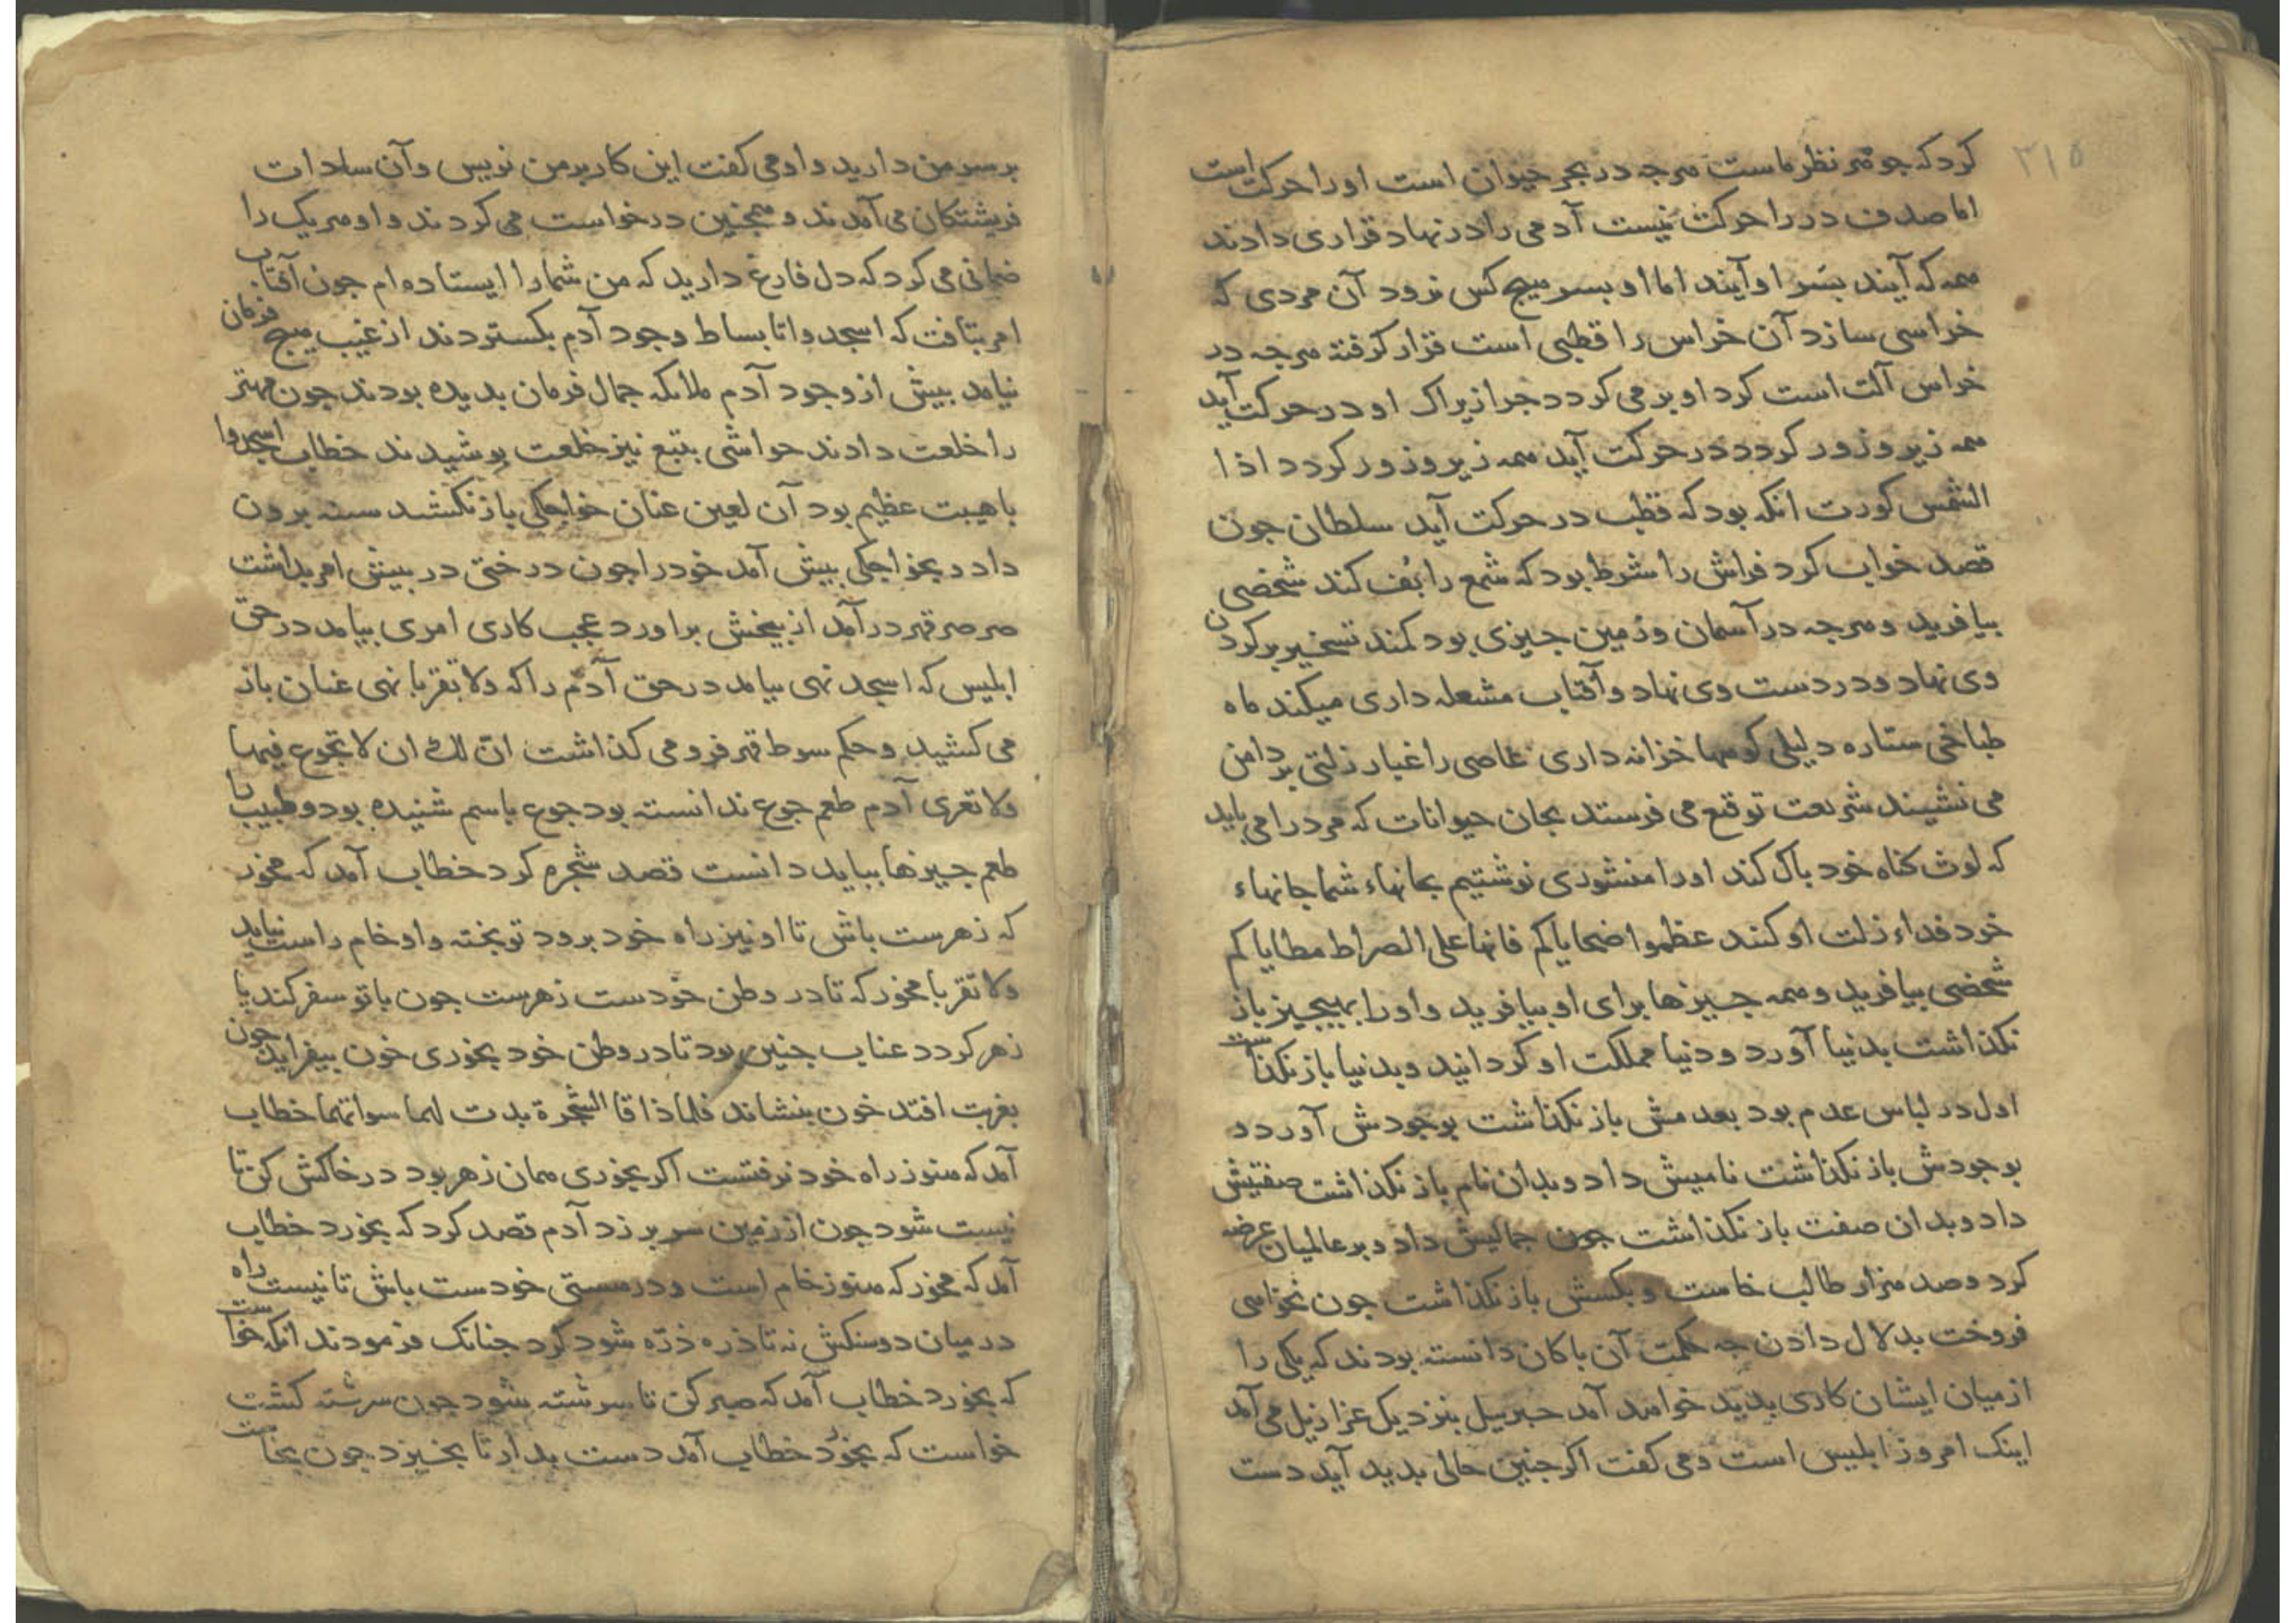 ۲۱۵
کرد که جوهر نظر ماست هرجه در بحر حیوان است او را حرکت است
اما صدف در را حرکت نیست آدمی را در نهاد قراری دادند
همه که آیند بسر او آیند اما او بسر هیج کس نرود آن مردی که
خراسی سازد آن خراس را قطبی است قرار کرفته هرجه در
خراس آلت است کرد او بر می کردد جرا زیراک او در حرکت آید
همه زیر و زور کردد در حرکت آید همه زیر و زور کردد اذا
الشمس کورت انکه بود که قطب در حرکت آید سلطان جون
قصد خواب کرد فراش را شرط بود که شمع را بُف کند شخصی
بیافرید و هرجه در آسمان و زمین جیزی بود کمند تسخیر بر کردن
وی نهاد و در دست وی نهاد و آفتاب مشعله داری میکند ماه
طباخی ستاره دلیلی کوهها خزانه داری عاصی را غبار زلتی بر دامن
می نشیند شریعت توقیع می فرستد بجان حیوانات که مرد را می باید
که لوث کناه خود باک کند او را منشوری نوشتیم بجانهاء شما جانهاء
خود فداء زلت او کنند عظموا ضحایاکم فانها علی الصراط مطایاکم
شخصی بیافرید و همه جیزها برای او بیافرید و او را بهیجیز باز
نکذاشت بدنیا آورد و دنیا مملکت او کردانید و بدنیا باز نکذاشت
اول در لباس عدم بود بعدمش باز نکذاشت بوجودش آورد و
بوجودش باز نکذاشت نامیش داد و بدان نام باز نکذاشت صفتیش
داد و بدان صفت باز نکذاشت جون جمالیش داد و بر عالمیان عرضه
کرد و صد هزار طالب خاست و بکسش باز نکذاشت جون نخواهی
فروخت بدلال دادن جه حکمت آن باکان دانسته بودند که یکی را
از میان ایشان کاری بدید خواهد آمد جبرییل بنزدیک عزازیل می آمد
اینک امروز ابلیس است و می کفت اکر جنین حالی بدید آید دست
بر سر من دارید و او می کفت این کار بر من نویس و آن سادات
فریشتکان می آمدند و همجنین درخواست می کردند و او هر یک را
ضمانی می کرد که دل فارغ دارید که من شما را ایستاده ام جون آفتاب
امر بتافت که اسجدوا تا بساط وجود آدم بکستردند از غیب هیج فرمان
نیامد بیش از وجود آدم ملائکه جمال فرمان بدیده بودند جون مهتر
را خلعت دادند حواشی بتبع نیز خلعت بوشیدند خطاب اسجدوا
باهیبت عظیم بود آن لعین عنان خواجکی باز نکشید سنه برون
داد و بخواجکی بیش آمد خود را جون درختی در بیش امر بداشت
صرصر قهر درآمد از بیخش براورد عجب کاری امری بیامد در حق
ابلیس که اسجد نهی بیامد در حق آدم را که ولا تقربا نهی عنان باز
می کشید و حکم سوط قهر فرو می کذاشت ان لک ان لا تجوع فیها
ولا تعری آدم طعم جوع ندانسته بود جوع باسم شنیده بود و طبیب را
طعم جیزها بباید دانست قصد شجره کرد خطاب آمد که مخور
که زهرست باش تا او نیز راه خود برود تو بخته و او خام راست نیاید
ولا تقربا مخور که تا در وطن خودست زهرست جون با تو سفر کند با
زهر کردد عناب جنین بود تا در وطن خود بخوری خون بیفزاید جون
بغربت افتد خون بنشاند فلما ذاقا الشجرة بدت لهما سواتهما خطاب
آمد که هنوز راه خود نرفتست اکر بخوری همان زهر بود در خاکش کن تا
نیست شود جون از زمین سر بر زد آدم قصد کرد که بخورد خطاب
آمد که مخور که هنوز خام است و در هستی خودست باش تا نیست راه
در میان دو سنکش نه تا ذره ذره شود کرد جنانک فرمودند انکه خواست
که بخورد خطاب آمد که صبر کن تا سرشته شود جون سرشته کشت
خواست که بخورد خطاب آمد دست بدار تا بخیزد جون بخاست